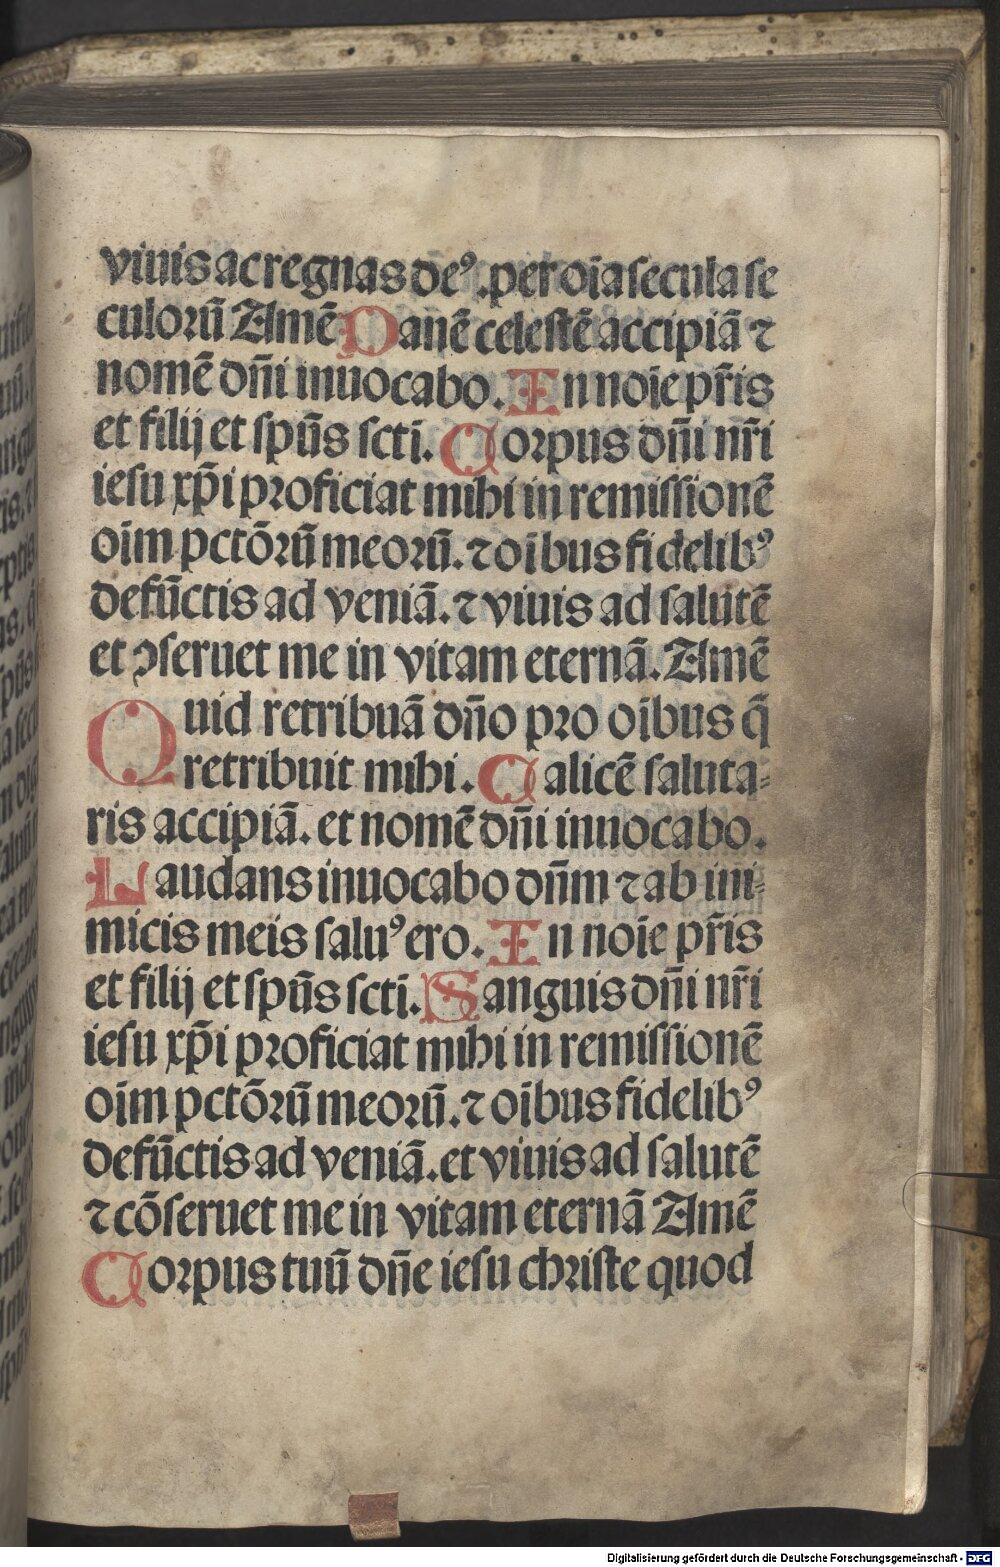 viuis ac regnas deꝰ. per oīa secula se
culorū Amē Panē celestē accipiā ⁊
nomē dn̄i inuocabo. In noīe pr̄is
et filij et spūs scti̅. Corpus dn̄i nr̄i
iesu xp̄i proficiat mihi in remissionē
oīm pctōrū meorū. ⁊ oībus fidelibꝰ
defūctis ad veniā. ⁊ viuis ad salutē
et ꝯseruet me in vitam eternā. Amē
Quid retribuā dn̄o pro oībus q̄
retribuit mihi. Calicē saluta⸗
ris accipiā. et nomē dn̄i inuocabo.
Laudans inuocabo dn̄m ⁊ ab ini⸗
micis meis saluꝰ ero. In noīe pr̄is
et filij et spūs scti̅. Sanguis dn̄i nr̄i
iesu xp̄i proficiat mihi in remissionē
oīm pctōrū meorū. ⁊ oībus fidelibꝰ
defūctis ad veniā. et viuis ad salutē
⁊ cōseruet me in vitam eternā Amē
Corpus tuū dn̄e iesu christe quod
Digitalisierung gefördert durch die Deutsche Forschungsgemeinschaft - DFG